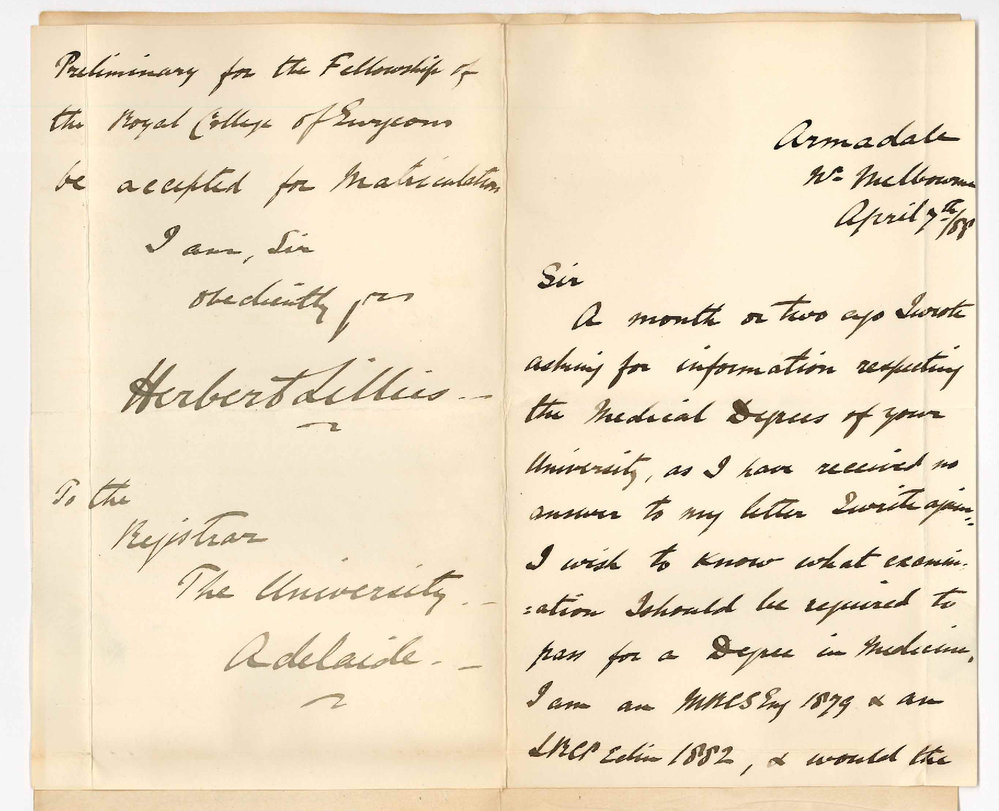 Armadale
Nr Melbourne
April 7th/88
Sir
A month or two ago I wrote
asking for information respecting
the Medical Degrees of your
University, as I have received no
answer to my letter I write again.
I wish to know what examin-
=ation I should be required to
pass for a Degree in Medicine,
I am an MRCS Eng 1879 & an
LRCP Edin 1882, & would the
Preliminary for the Fellowship of
the Royal College of Surgeons
be accepted for Matriculation
I am, Sir
obediently yrs
Herbert Lillies
To the
Registrar
The University
Adelaide